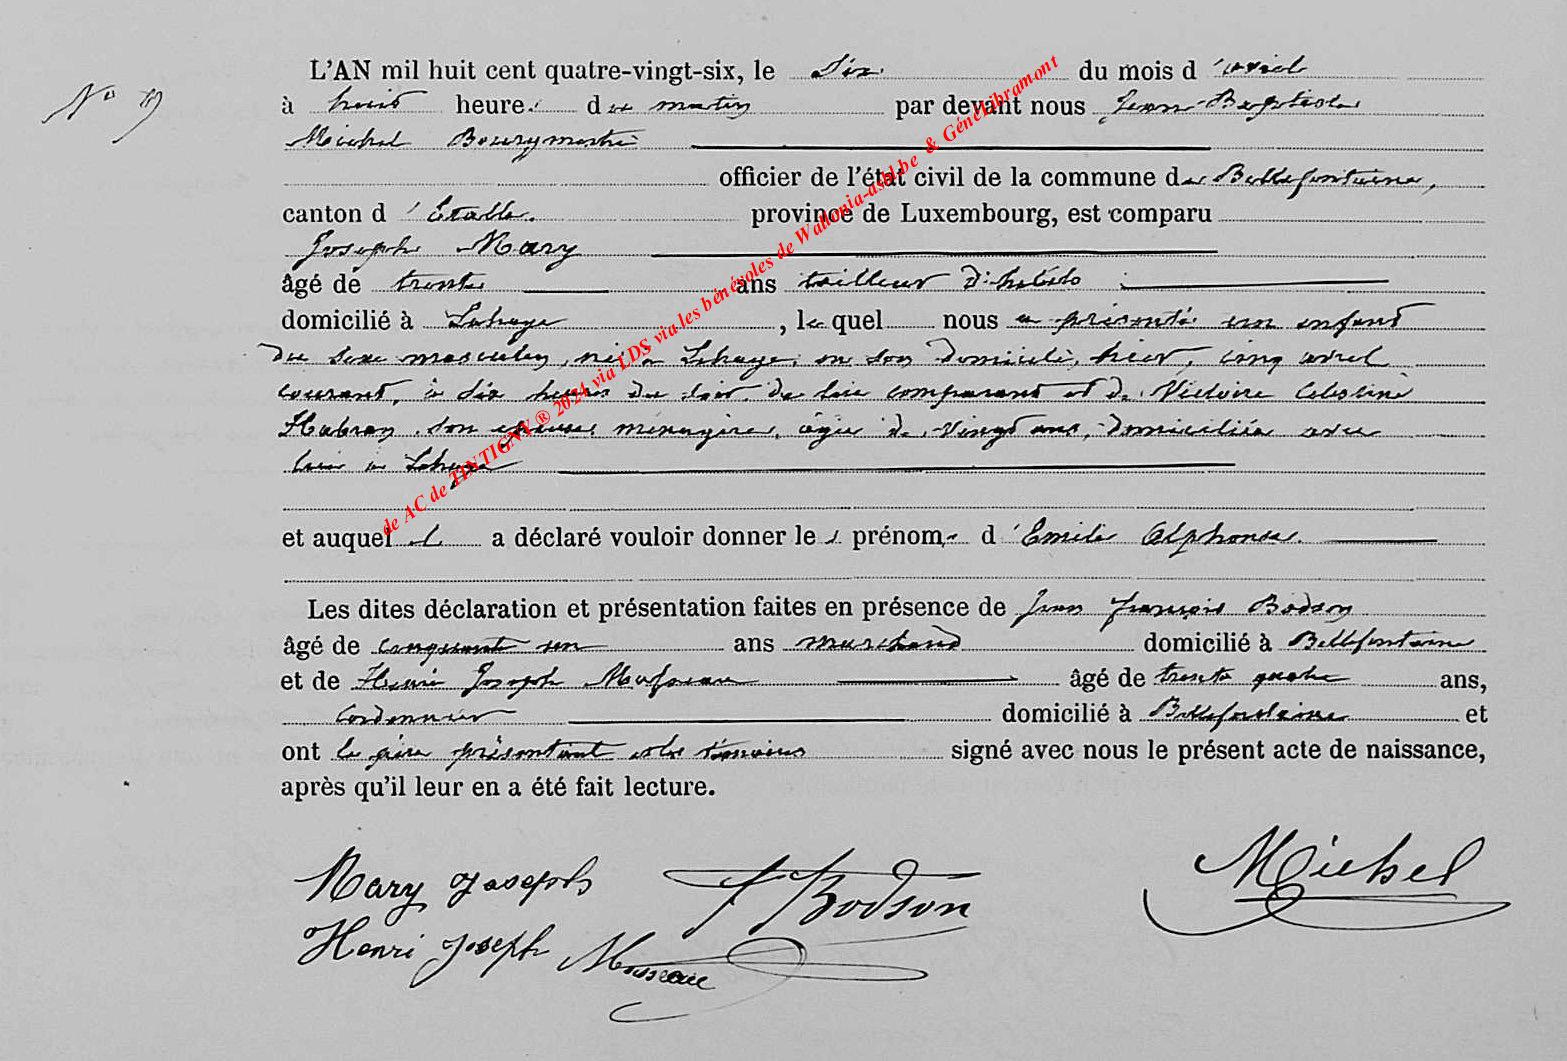 L'AN mil huit cent quatre-vingt-six, le six du mois d'avril
N°
à huit heures du matin par devant nous Jean-Baptiste
Michel Bourgmestre
officier de l'état civil de la commune de Bellefontaine,
canton d'Etalle. province de Luxembourg, est comparu
Joseph Mary
âgé de trente ans tailleur d'habits
domicilié à Lahage, lequel nous a présenté un enfant
du sexe masculin, né à Lahage, en son domicile, hier, cinq avril
courant, à six heures du soir, de lui comparant et de Victoire Célestine
Habran, son épouse, ménagère, âgée de vingt ans, domiciliée avec
lui à Lahage
et auquel il a déclaré vouloir donner les prénoms d'Emile Alphonse.
Les dites déclaration et présentation faites en présence de Jean François Bodson
âgé de cinquante un ans marchand domicilié à Bellefontaine
et de Henri Joseph Musseau âgé de trente quatre ans,
cordonnier domicilié à Bellefontaine et
ont le père présentant et les témoins signé avec nous le présent acte de naissance,
après qu'il leur en a été fait lecture.
Mary Joseph
Bodson
Michel
Henri Joseph Musseau
de AC de TINTIGNY ® 2024 via LDS via les bénévoles de Wallonia-asbl.be & GénéLibramont